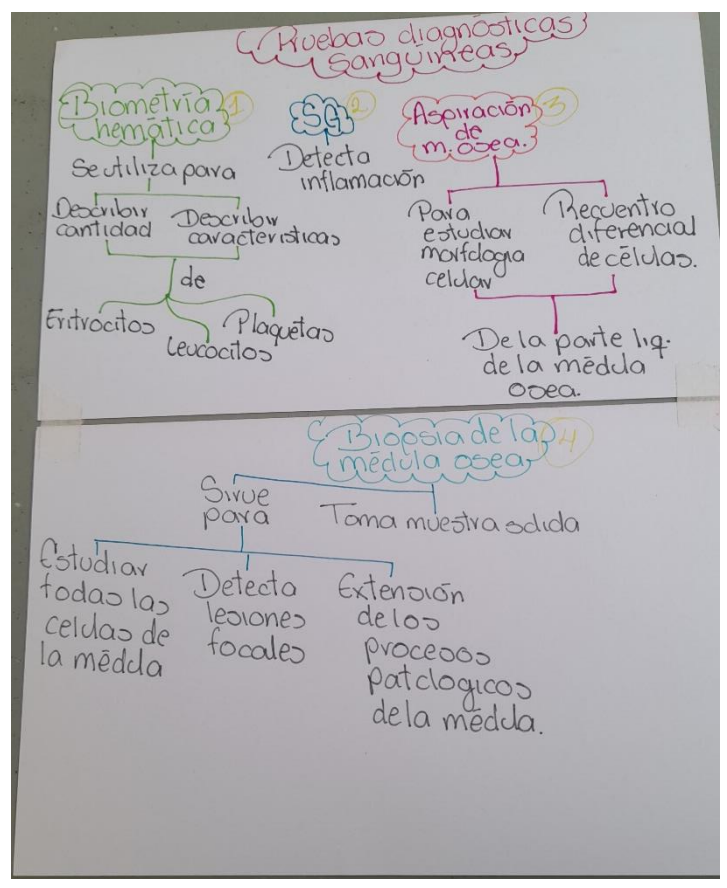 Pruebas diagnósticas
Sanguíneas
Biometría
hemática
1
Se utiliza para
Describir
cantidad
Describir
características
de
Eritrocitos
Leucocitos
Plaquetas
SG
2
Detecta
inflamación
Aspiración
de
m. osea.
3
Para
estudiar
morfologia
celular
Recuentro
diferencial
de células.
De la parte liq.
de la médula
osea.
Biopsia de la
médula osea
4
Sirve
para
Toma muestra solida
Estudiar
todas las
celulas de
la médula
Detecta
lesiones
focales
Extensión
de los
procesos
patologicos
de la médula.